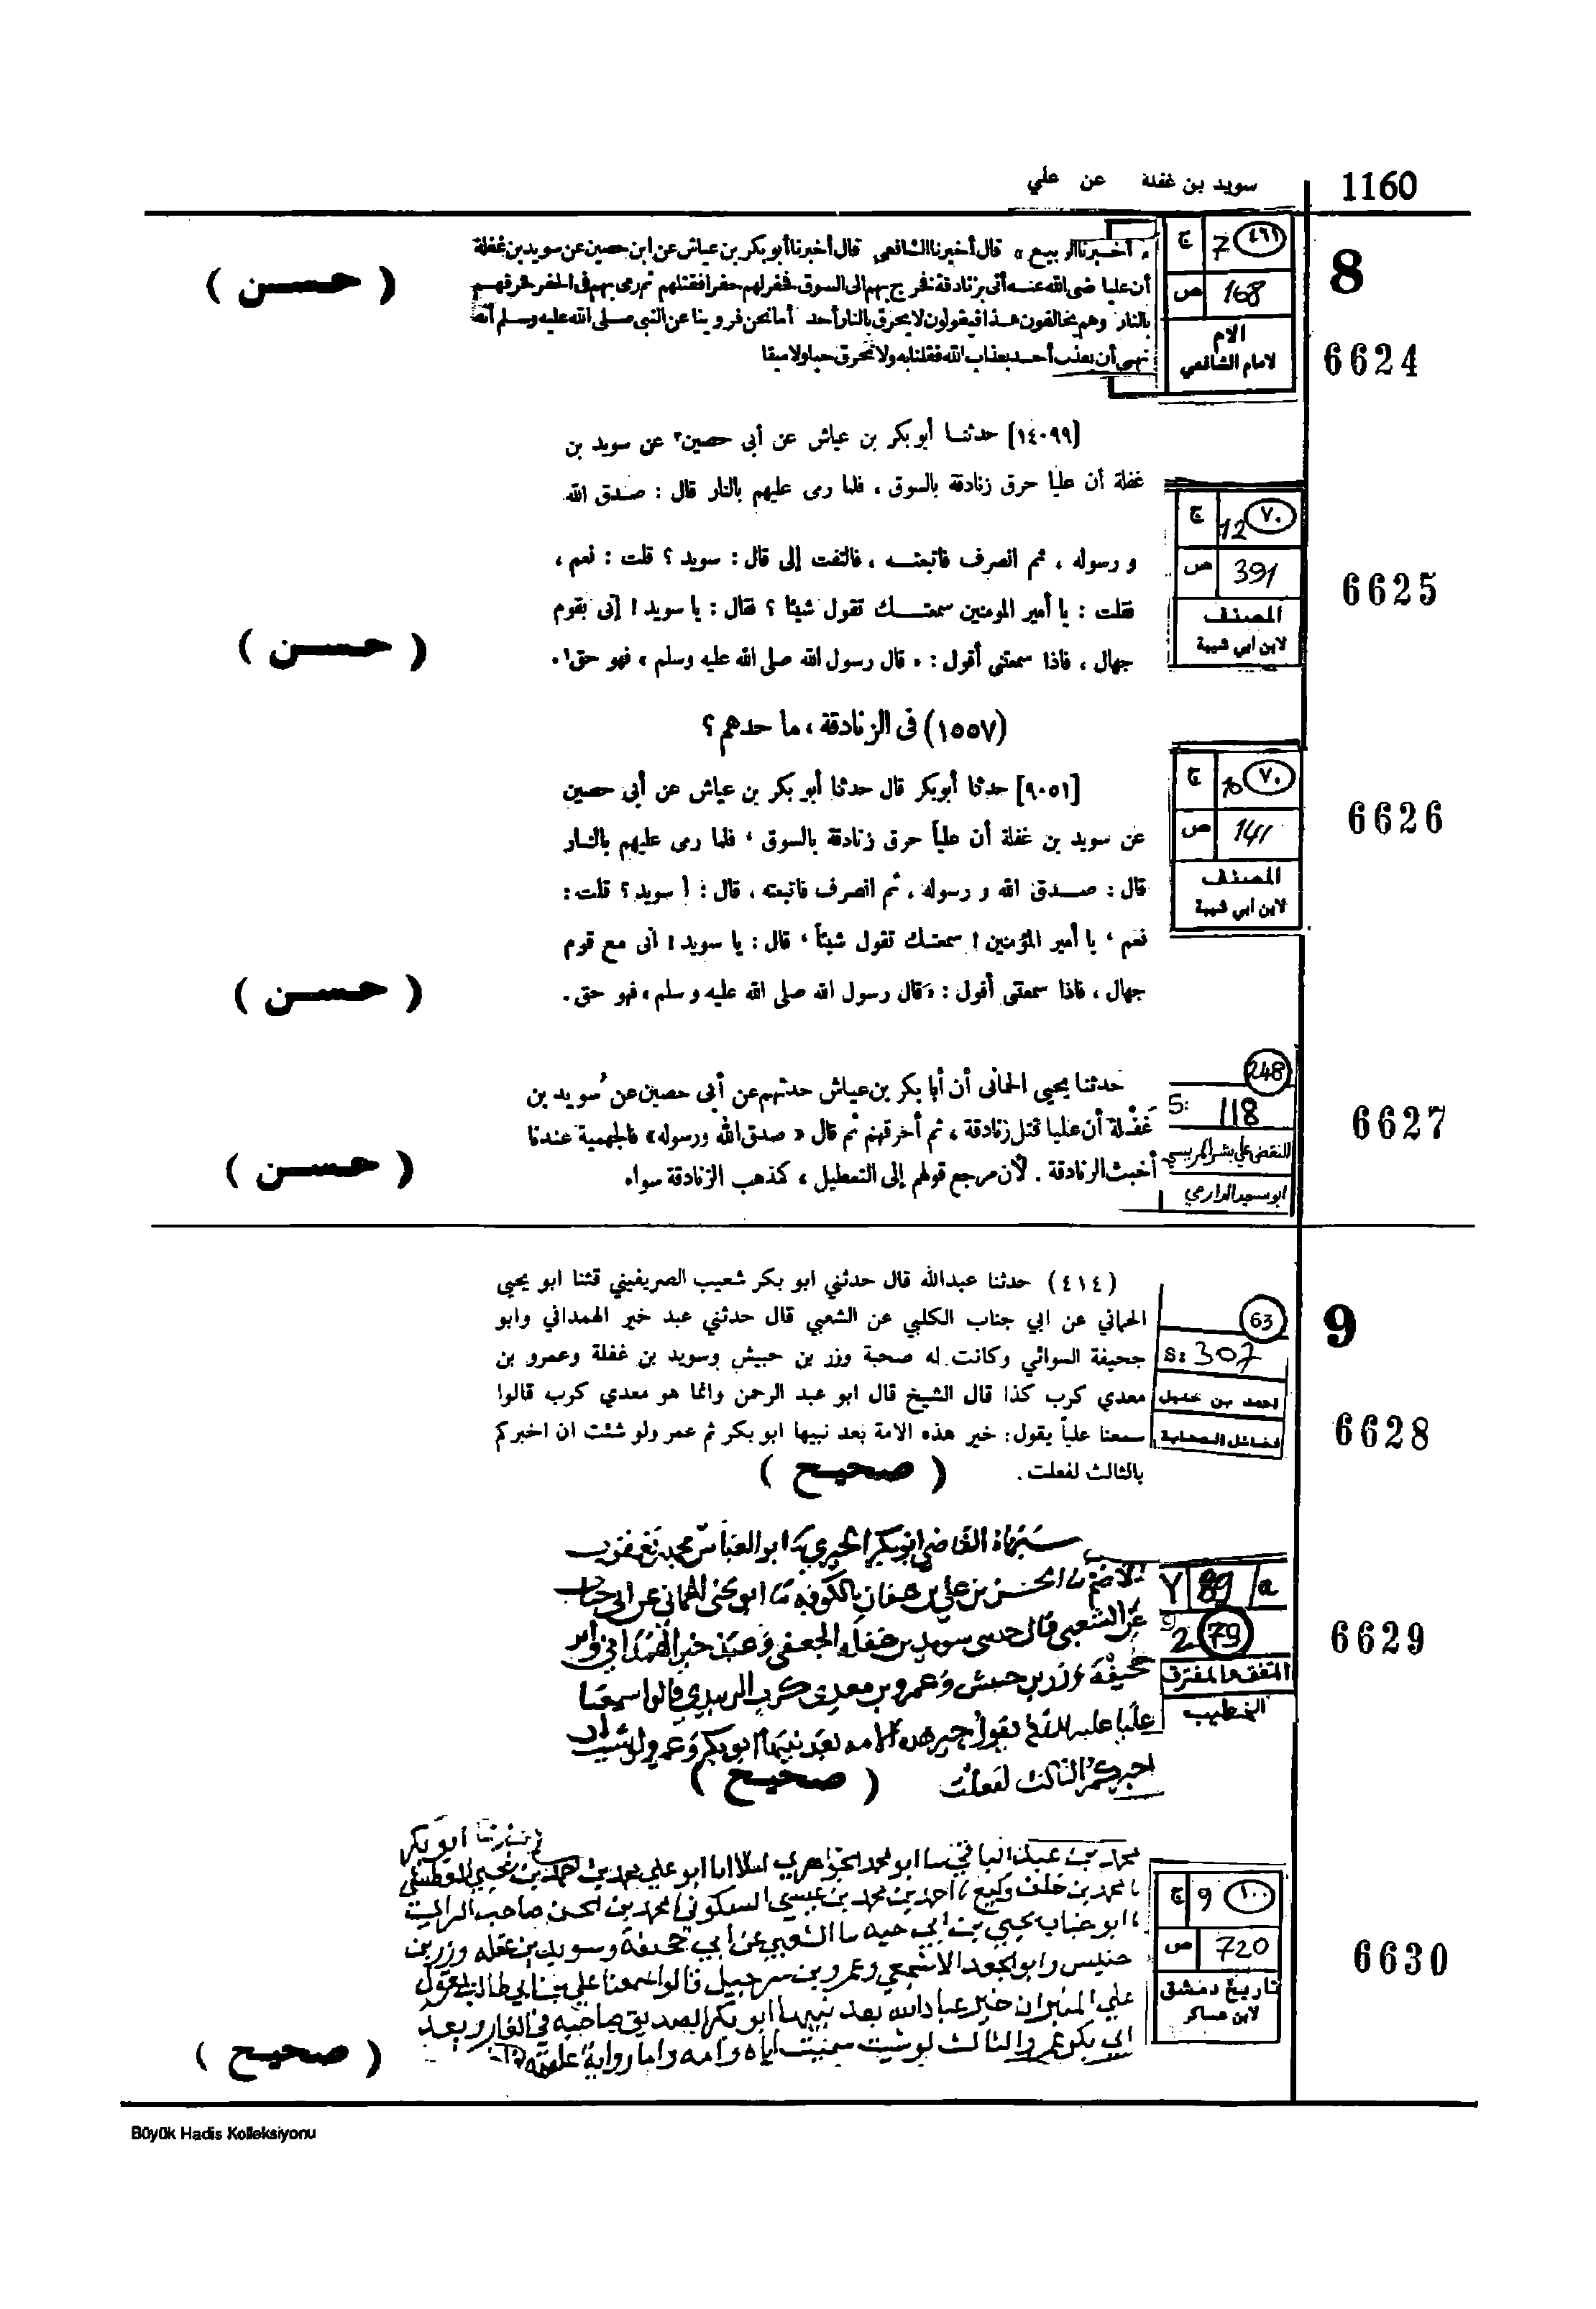 1160
سويد بن غفلة عن علي
8
ج 7 (٤٩١)
ص 168
الام
لامام الشافعي
6624
« أخبرنا الربيع » قال أخبرنا الشافعي قال أخبرنا أبو بكر بن عياش عن ابن حصين عن سويد بن غفلة
أن عليا رضي الله عنه أتى بزنادقة فخرج بهم الى السوق فحفر لهم حفرا فقتلهم ثم رمى بهم في الحفر فحرقهم
بالنار وهم يخالفون هذا فيقولون لا يحرق بالنار أحد أما نحن فروينا عن النبي صلى الله عليه وسلم أنه
نهى أن يعذب أحد بعذاب الله فقلنا به ولا نحرق حيا ولا ميتا
( حسن )
[١٤٠٩٩] حدثنا أبو بكر بن عياش عن أبى حصين٣ عن سويد بن
غفلة أن عليا حرق زنادقة بالسوق ، فلما رمى عليهم بالنار قال : صدق الله
و رسوله ، ثم انصرف فاتبعته ، فالتفت إلى قال : سويد ؟ قلت : نعم ،
فقلت : يا أمير المومنين سمعتك تقول شيئا ؟ فقال : يا سويد ! إنى بقوم
جهال ، فاذا سمعتنى أقول : « قال رسول الله صلى الله عليه وسلم » فهو حق١ .
ج 12 (٧٠)
ص 391
المصنف
لابن ابي شيبة
6625
( حسن )
(١٥٥٧) فى الزنادقة ، ما حدهم ؟
[٩٠٥١] حدثنا أبو بكر قال حدثنا أبو بكر بن عياش عن أبى حصين
عن سويد بن غفلة أن علياً حرق زنادقة بالسوق ، فلما رمى عليهم بالنار
قال : صدق الله و رسوله ، ثم انصرف فاتبعته ، قال : أ سويد ؟ قلت :
نعم ، يا أمير المؤمنين ! سمعتك تقول شيئاً ، قال : يا سويد ! انى مع قوم
جهال ، فاذا سمعتنى أقول : « قال رسول الله صلى الله عليه و سلم » فهو حق .
ج 10 (٧٠)
ص 141
المصنف
لابن ابي شيبة
6626
( حسن )
حدثنا يحيى الحمانى أن أبا بكر بن عياش حدثهم عن أبى حصين عن سُويد بن
غَفْلة أن عليا قتل زنادقة ، ثم أحرقهم ثم قال « صدق الله ورسوله » فالجهمية عندنا
أخبث الزنادقة . لأن مرجع قولهم إلى التعطيل ، كمذهب الزنادقة سواء
248
S: 118
النقض علي بشر المريسي
ابو سعيد الدارمي
6627
( حسن )
9
(٤١٤) حدثنا عبدالله قال حدثني ابو بكر شعيب الصريفيني قثنا ابو يحيى
الحماني عن ابي جناب الكلبي عن الشعبي قال حدثني عبد خير الهمداني وابو
جحيفة السوائي وكانت له صحبة وزر بن حبيش وسويد بن غفلة وعمرو بن
معدي كرب كذا قال الشيخ قال ابو عبد الرحمن وانما هو معدي كرب قالوا
سمعنا علياً يقول : خير هذه الامة بعد نبيها ابو بكر ثم عمر ولو شئت ان اخبركم
بالثالث لفعلت .
63
S: 307
احمد بن حنبل
فضائل الصحابة
6628
( صحيح )
القاضي ابو بكر الحيري نا ابو العباس محمد بن يعقوب
الاصم نا الحسن بن علي بن عفان بالكوفة نا ابو يحيى الحماني عن ابي جناب
عن الشعبي قال حدثني سويد بن غفله الجعفي وعبد خير الهمداني وابو
جحيفة وزر بن حبيش وعمرو بن معدي كرب الزبيدي قالوا سمعنا
عليا عليه السلام يقول خير هذه الامه بعد نبيها ابو بكر وعمر ولو شئت ان
اخبركم الثالث لفعلت
Y 89/a
2 (79)
المتفق والمفترق
الخطيب
6629
( صحيح )
اخبرنا ابو بكر
محمد بن عبد الباقي نا ابو محمد الجوهري املا انا ابو علي محمد بن احمد بن يحيى العطشي
نا محمد بن خلف وكيع نا احمد بن محمد بن عيسى السكوني نا محمد بن الحسن صاحب الراي
نا ابو جناب يحيى بن ابي حيه نا الشعبي عن أبي جحيفة وسويد بن غفله وزر بن
حبيش وابو الجعد الاشجعي وعمرو بن سرحبيل قالوا سمعنا علي بن ابي طالب يقول
علي المنبر ان خير عباد الله بعد نبيها ابو بكر الصديق صاحبه في الغار وبعد
ابي بكر عمر والثالث لو شيت سميت اياه وامه واما رواية علقمه
ج 9 (١٠٠)
ص 720
تاريخ دمشق
لابن عساكر
6630
( صحيح )
Büyük Hadis Kolleksiyonu